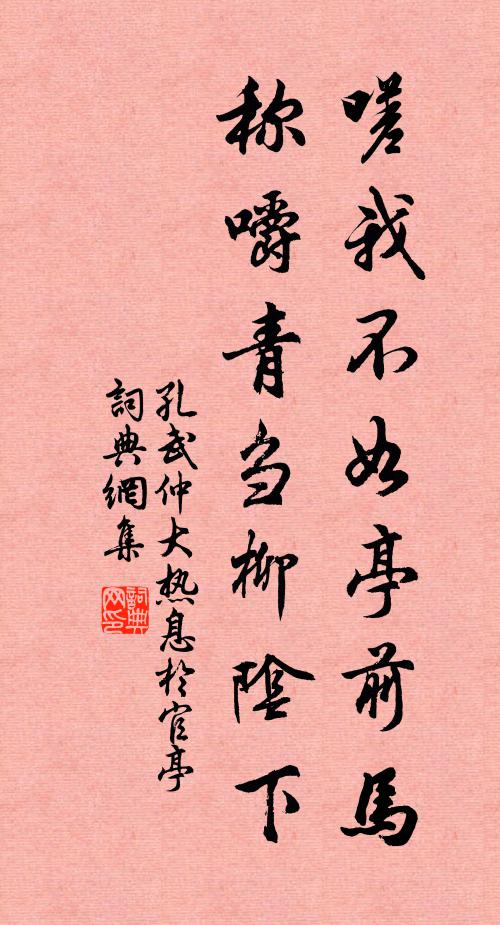 嗟我不如亭前馬
稱嚼青刍柳陰下
孔武仲大热息於官亭
詞典網集
詞典网印